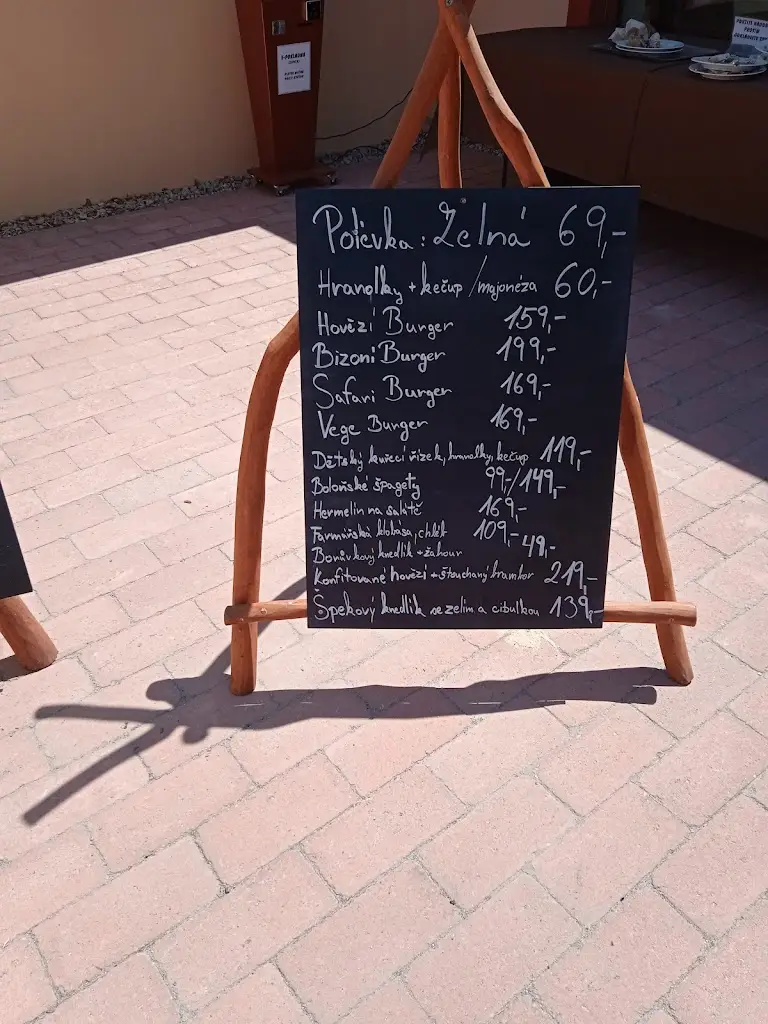 Polévka: Zelná 69,-
Hranolky + kečup /majonéza 60,-
Hovězí Burger 159,-
Bizoní Burger 199,-
Safari Burger 169,-
Vege Burger 169,-
Dětský kuřecí řízek, hranolky, kečup 119,-
Boloňské špagety 99,-/149,-
Hermelin na salátě 169,-
Farmářská klobása, chléb 109,-
Borůvkový knedlík + žahour 49,-
Konfitované hovězí + šťouchaný brambor 219,-
Špekový knedlík se zelím a cibulkou 139,-